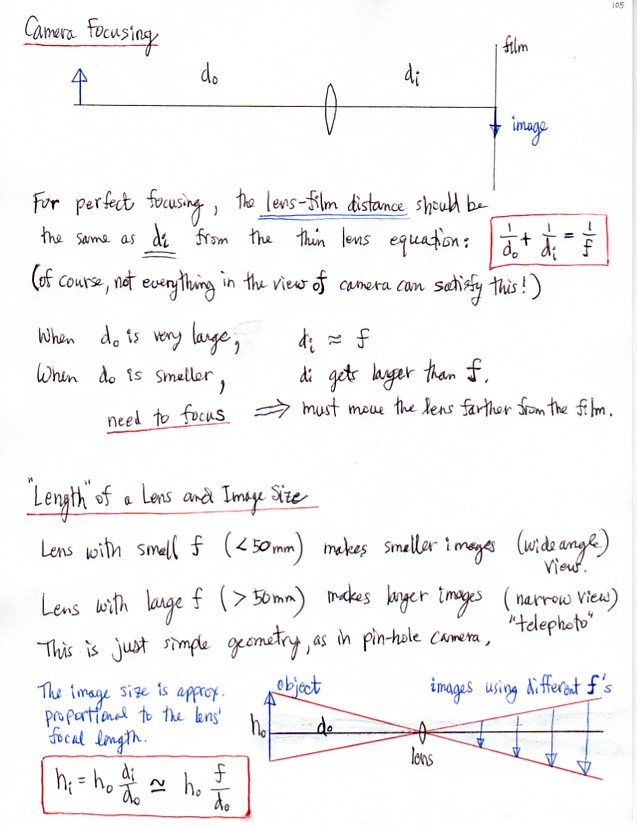 105
Camera Focusing
film
do
di
image
For perfect focusing, the lens-film distance should be
the same as di from the thin lens equation:
1/do + 1/di = 1/f
(of course, not everything in the view of camera can satisfy this!)
When do is very large, di ≈ f
When do is smaller, di gets larger than f.
need to focus ⟹ must move the lens farther from the film.
"Length" of a Lens and Image Size
Lens with small f (<50mm) makes smaller images (wide angle)
view.
Lens with large f (>50mm) makes larger images (narrow view)
"telephoto"
This is just simple geometry, as in pin-hole camera.
The image size is approx.
proportional to the lens'
focal length.
hi = ho di/do ≃ ho f/do
object
images using different f's
ho
do
lens